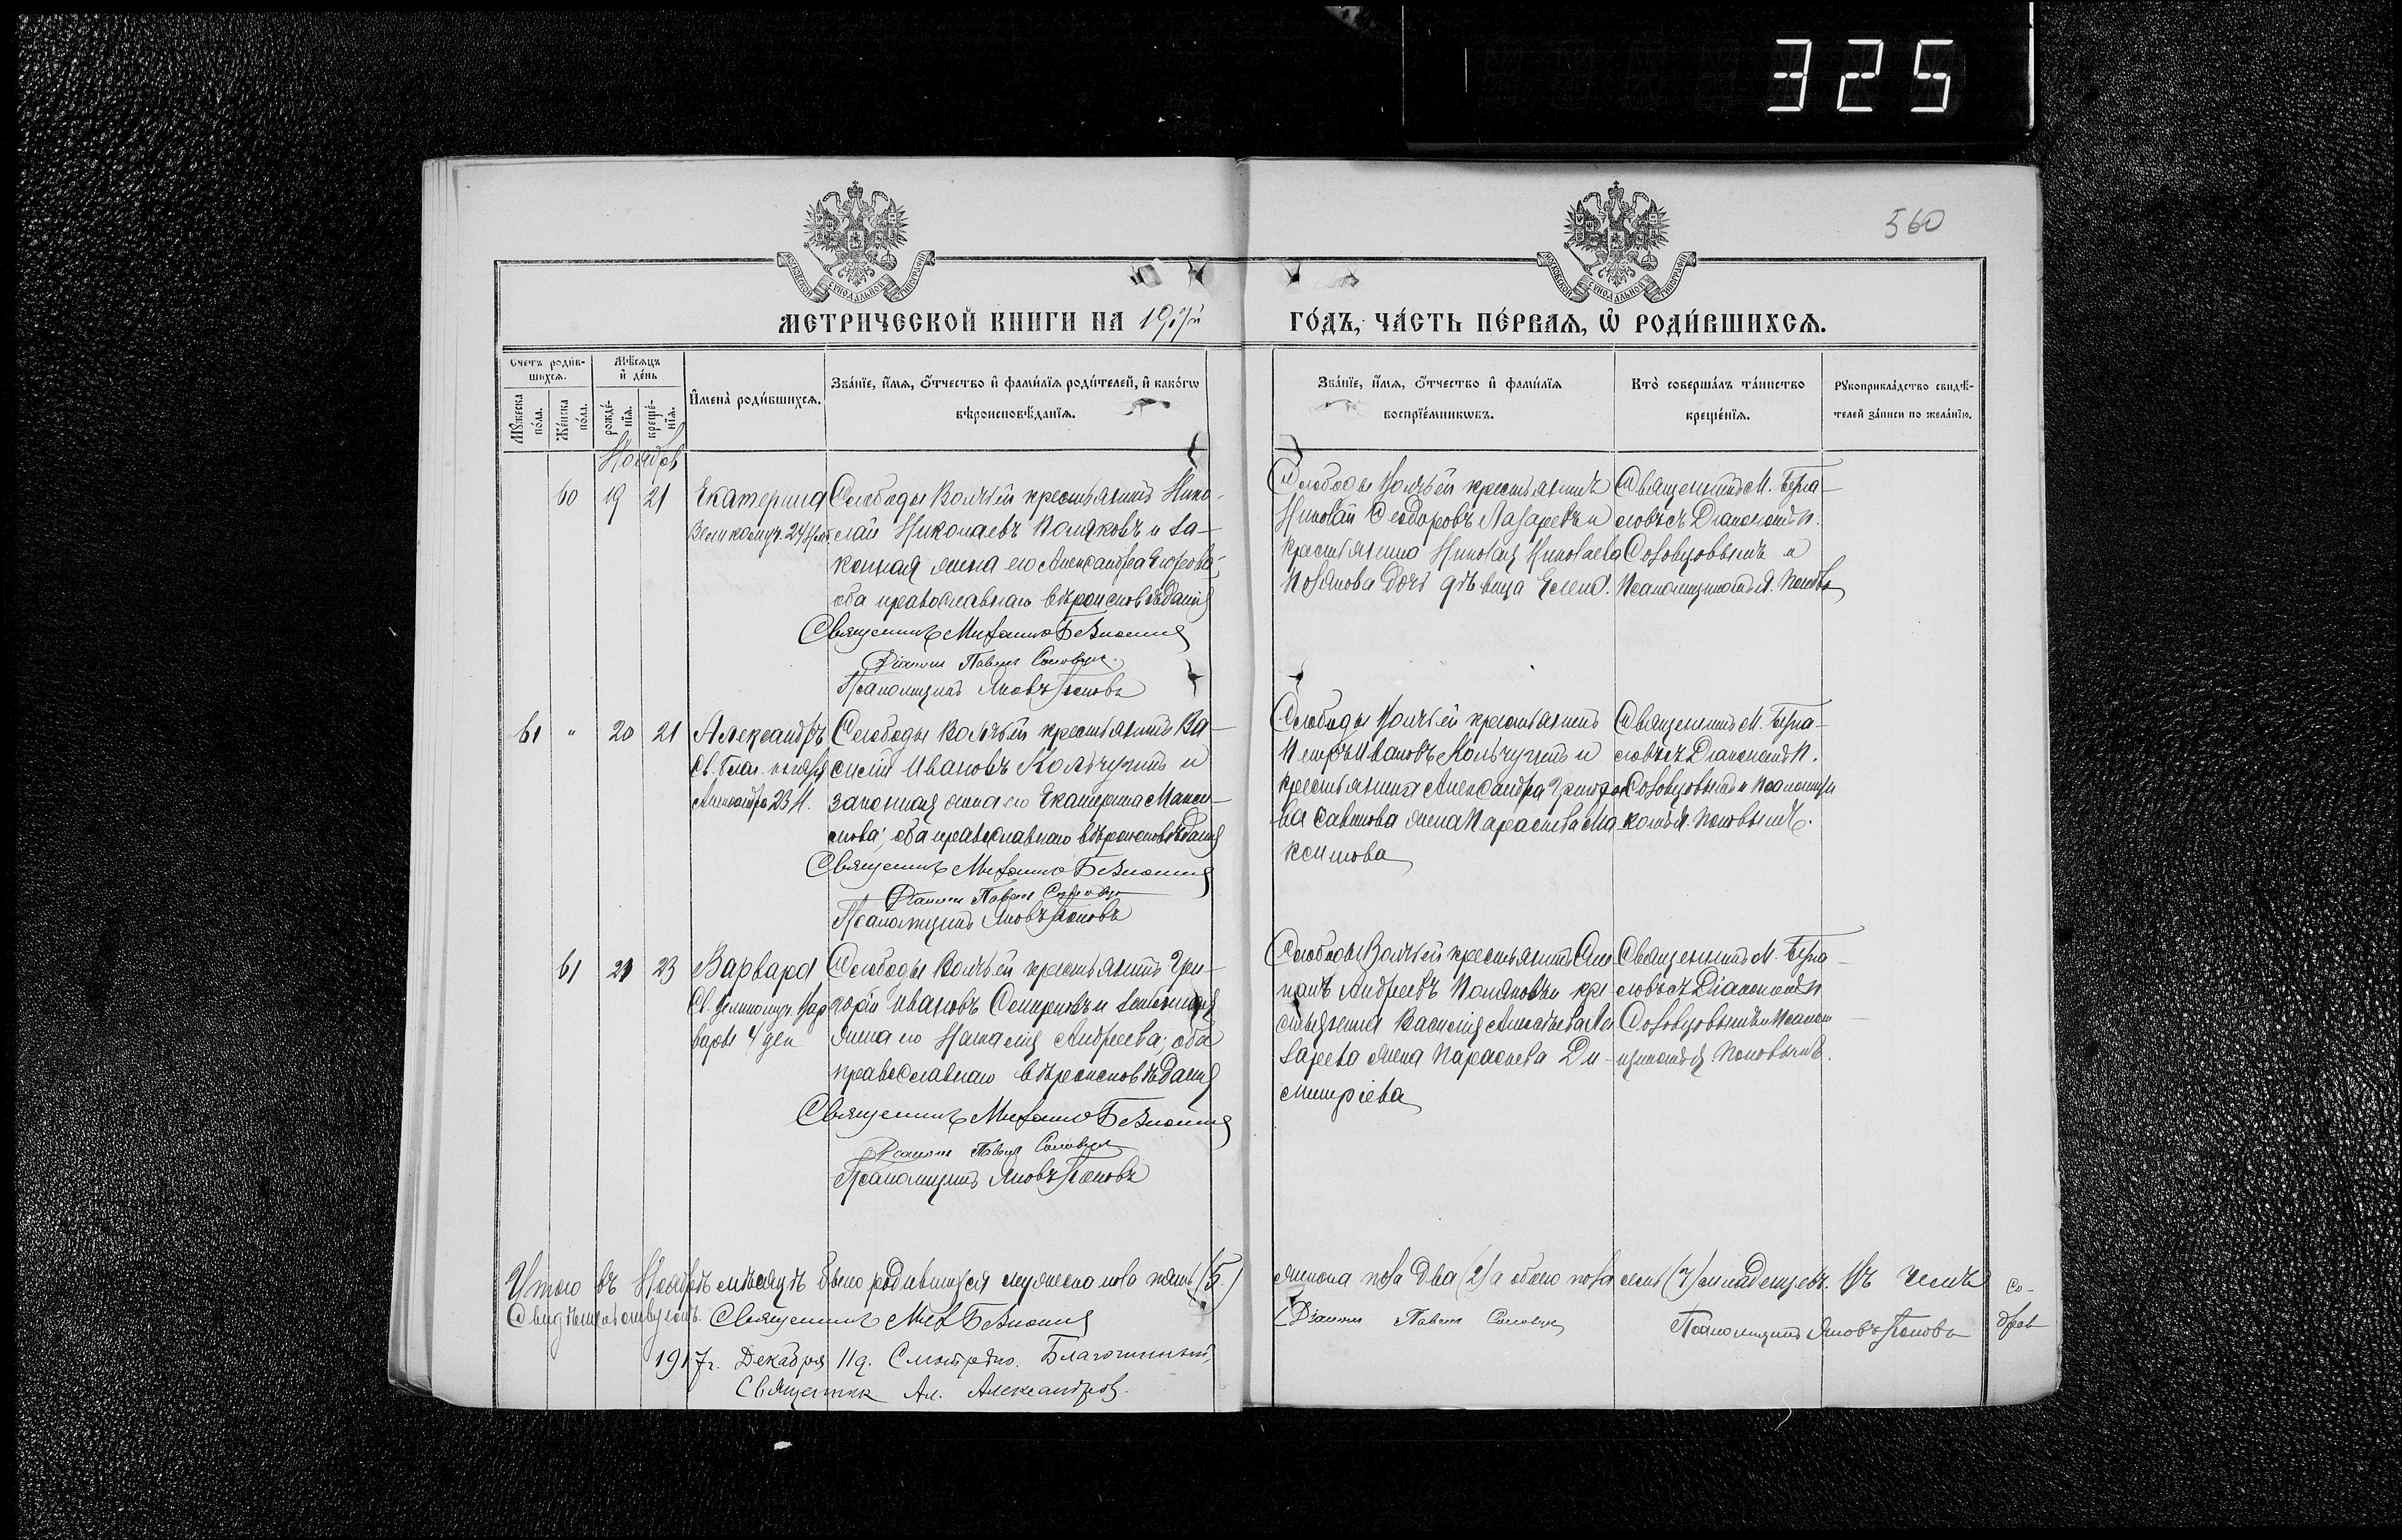 325
560
МОСКОВСКОЙ СѴНОДАЛЬНОЙ ТИПОГРАФІИ
МОСКОВСКОЙ СѴНОДАЛЬНОЙ ТИПОГРАФІИ
МЕТРИЧЕСКОЙ КНИГИ НА 1917й ГО́ДЪ, ЧА́СТЬ ПЕ́РВАѦ, Ѽ РОДИ́ВШИХСѦ.
Счетъ роди́в-
шихсѧ.
Мꙋ́жеска по́ла.
Же́нска по́ла.
Мѣ́сѧцъ
и҆ де́нь
рожде́-
нїѧ.
креще́-
нїѧ.
И҆мена̀ роди́вшихсѧ.
Зва́нїе, и҆́мѧ, ѻ҆́тчество и҆ фами́лїѧ роди́телей, и҆ како́гѡ
вѣроисповѣ́данїѧ.
Зва́нїе, и҆́мѧ, ѻ҆́тчество и҆ фами́лїѧ
воспрїе́мникѡвъ.
Кто̀ соверша́лъ та́инство
креще́нїѧ.
Рꙋкоприкла́дство свидѣ́-
телей за́писи по жела́нїю.
Ноябрь
60 19 21 Екатерина
Великомуч. 24 Нояб.
Слободы Волчьей крестьянинъ Нико-
лай Николаевъ Поляковъ и за-
конная жена его Александра Егорова,
оба православнаго вѣроисповѣданія
Священникъ Михаилъ
Діаконъ Павелъ
Псаломщикъ Яковъ Поповъ
Слободы Волчьей крестьянинъ
Николай Ѳеодоровъ Лазаревъ и
крестьянина Николая Николаева
Полякова дочь дѣвица Елена.
Священникъ М.
съ Діакономъ П.
и
Псаломщикомъ Я. Поповы
61 " 20 21 Александръ
Св. Благ. князя
Александра 23 Н.
Слободы Волчьей крестьянинъ Ва-
силій Ивановъ Кольчугинъ и
законная жена его Екатерина Макси-
мова; оба православнаго вѣроисповѣданія
Священникъ Михаилъ
Діаконъ Павелъ
Псаломщикъ Яковъ Поповъ
Слободы Волчьей крестьянинъ
Петръ Ивановъ Кольчугинъ и
крестьянина Александра Григорье
ва Савинова жена Параскева Ма
ксимова
Священникъ М.
съ Діакономъ П.
и Псаломщи
комъ Я. Поповымъ.
61 21 23 Варвара
Св. Великомуч. Вар
вары 4 дек
Слободы Волчьей крестьянинъ Гри-
горій Ивановъ и законная
жена его Наталія Андреева; оба
православнаго вѣроисповѣданія
Священникъ Михаилъ
Діаконъ Павелъ
Псаломщикъ Яковъ Поповъ
Слободы Волчьей крестьянинъ Сте
панъ Андреевъ Поляковъ и кре-
стьянина Василія Алексѣева Ла
зарева жена Параскева Ди-
митріева
Священникъ М.
съ Діакономъ П
и Псалом
щикомъ Я. Поповымъ.
Итого въ Ноябрѣ мѣсяцѣ было родившихся мужеска пола пять (5.) женска пола два (2) а обоего пола семь (7) младенцевъ. Въ чемъ со-
Свидѣтельствуемъ. Священникъ Мих. Діаконъ Павелъ Псаломщикъ Яковъ Поповъ
1917 г. Декабря 11 д. Смотрѣно. Благочинный,
Священник Ал. Александров.